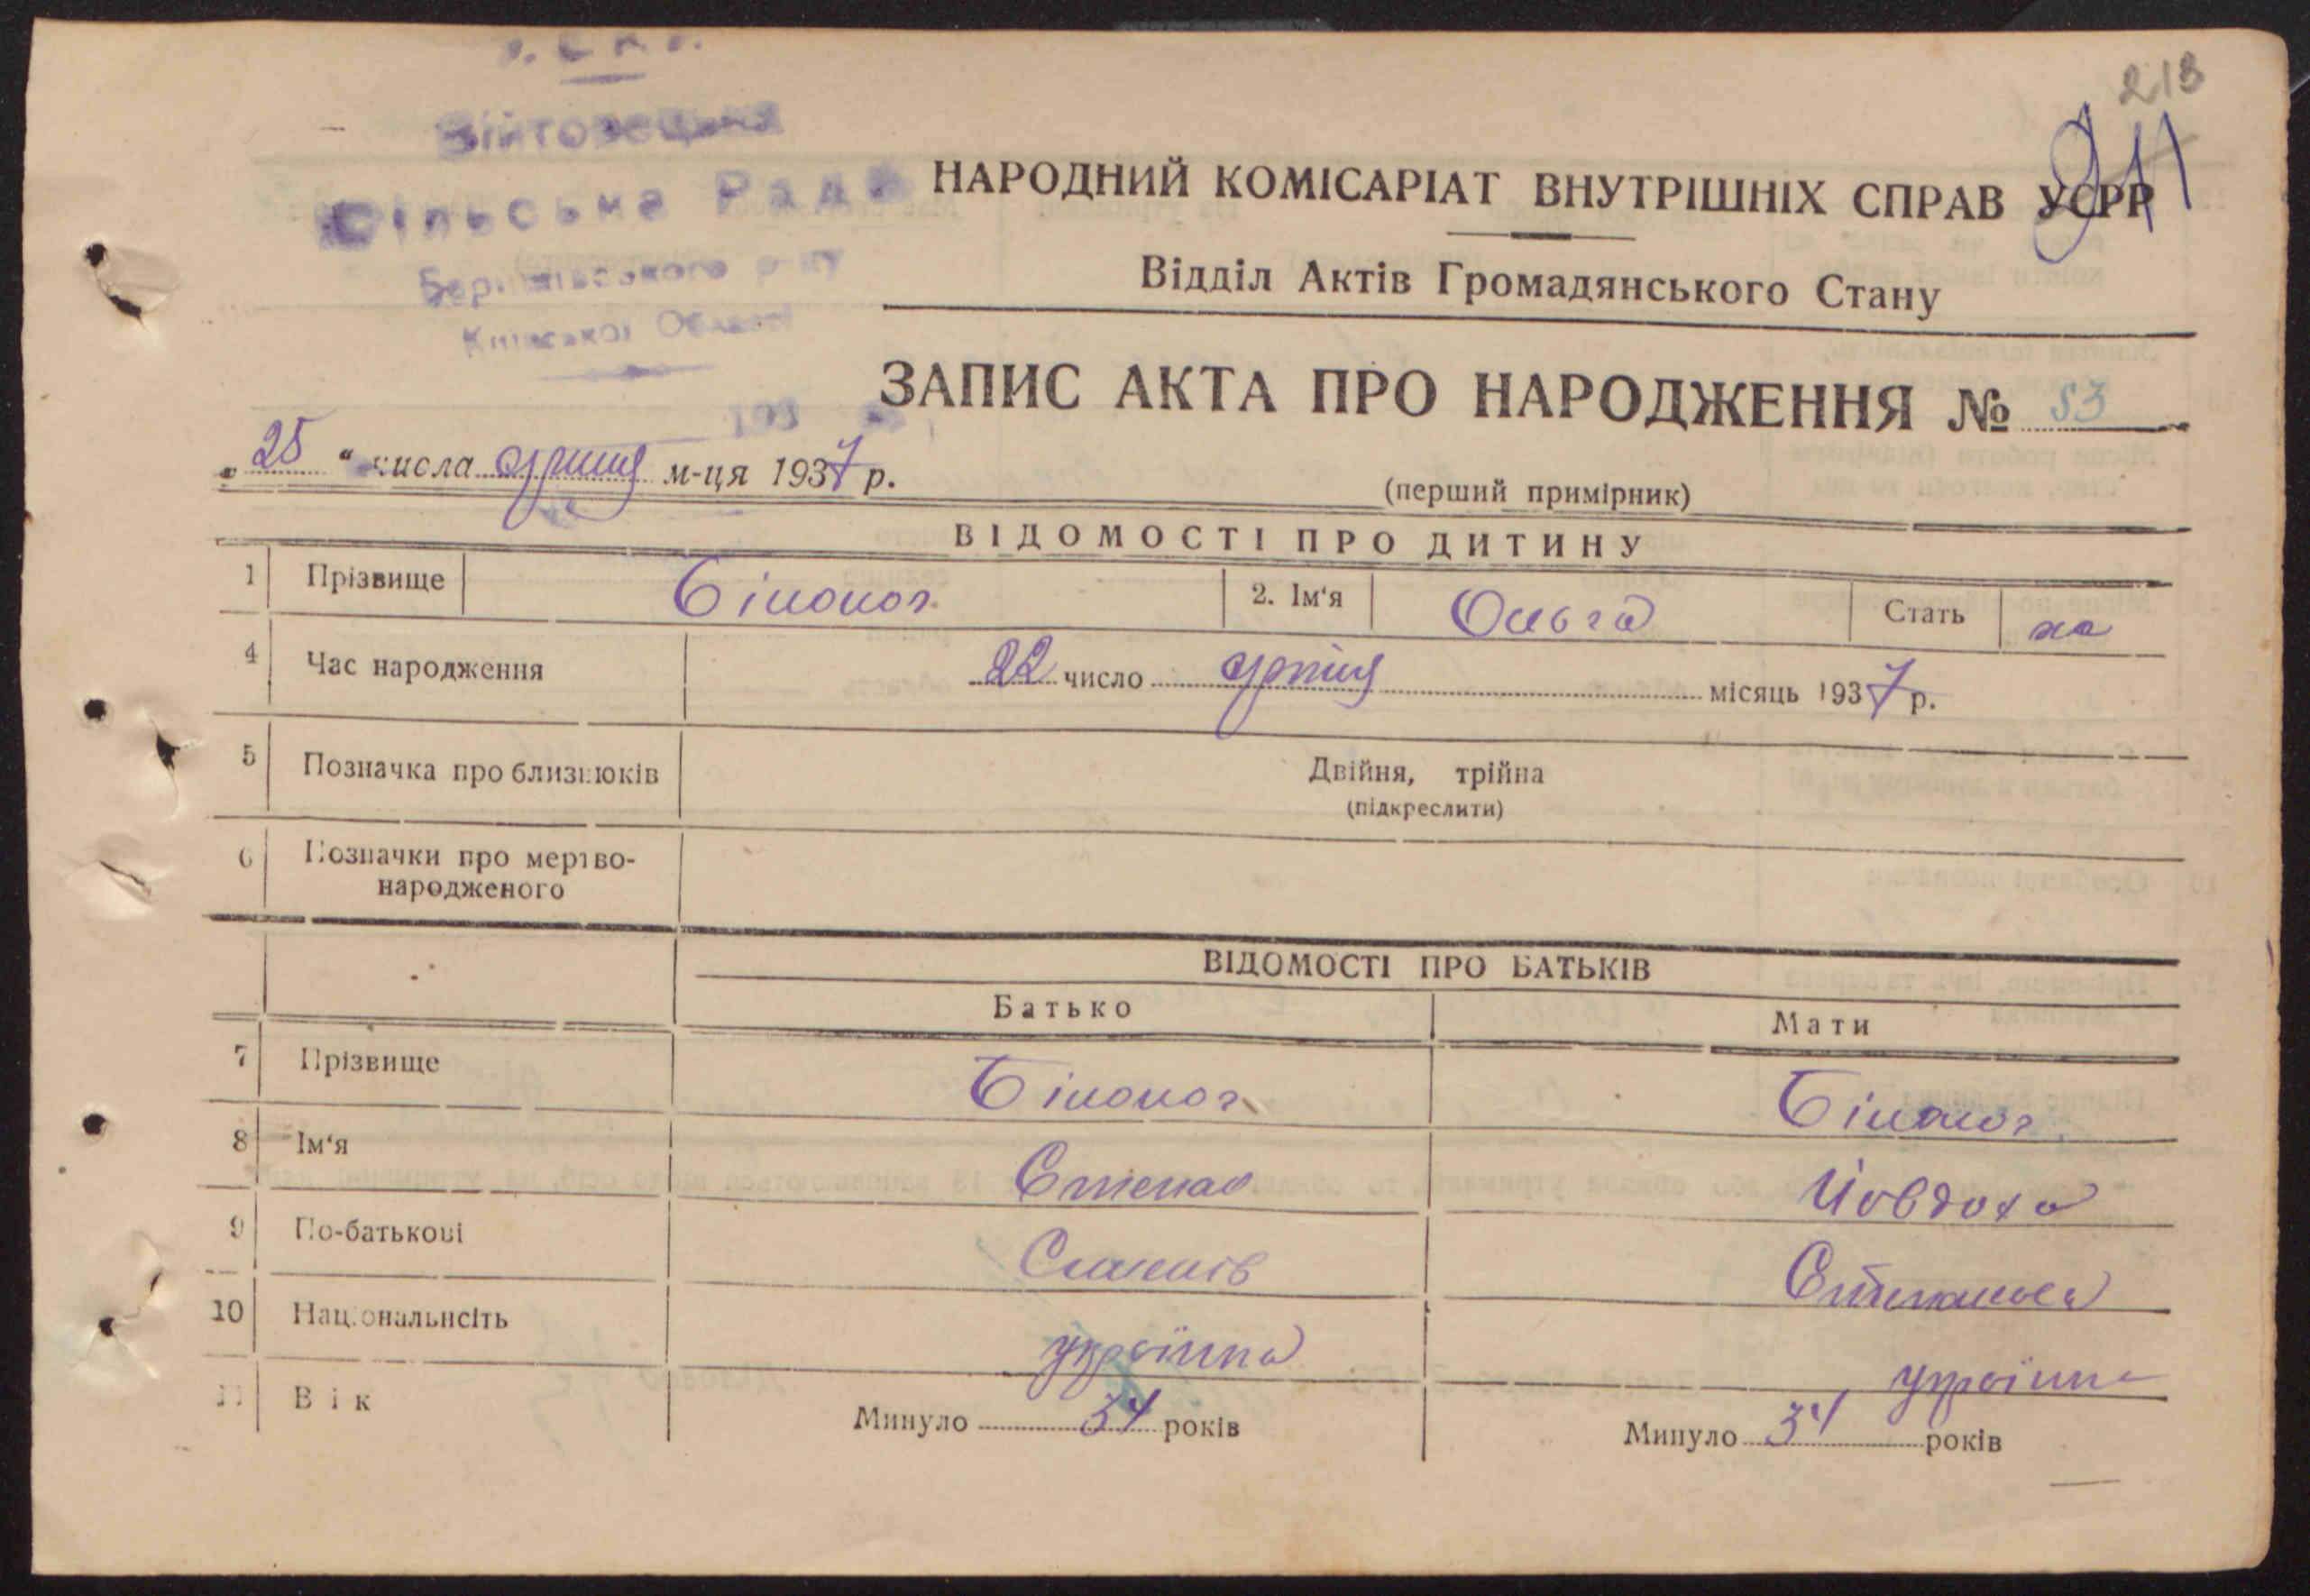 213
211
Війтовецька
Сільська Рада
Баришівського р-ну
Київської Області
НАРОДНИЙ КОМІСАРІАТ ВНУТРІШНІХ СПРАВ УСРР
Відділ Актів Громадянського Стану
ЗАПИС АКТА ПРО НАРОДЖЕННЯ № 53
„25“ числа серпня м-ця 1937 р.
(перший примірник)
ВІДОМОСТІ ПРО ДИТИНУ
1 Прізвище Білоног 2. Ім‘я Ольга Стать жо
4 Час народження 22 число серпня місяць 1937 р.
5 Позначка про близнюків Двійня, трійна
(підкреслити)
6 Позначки про мертво-
народженого
ВІДОМОСТІ ПРО БАТЬКІВ
Батько Мати
7 Прізвище Білоног Білоног
8 Ім‘я Степан Йовдоха
9 По-батькові Степанова
10 Національнсіть україн
11 Вік Минуло 34 років Минуло 34 років